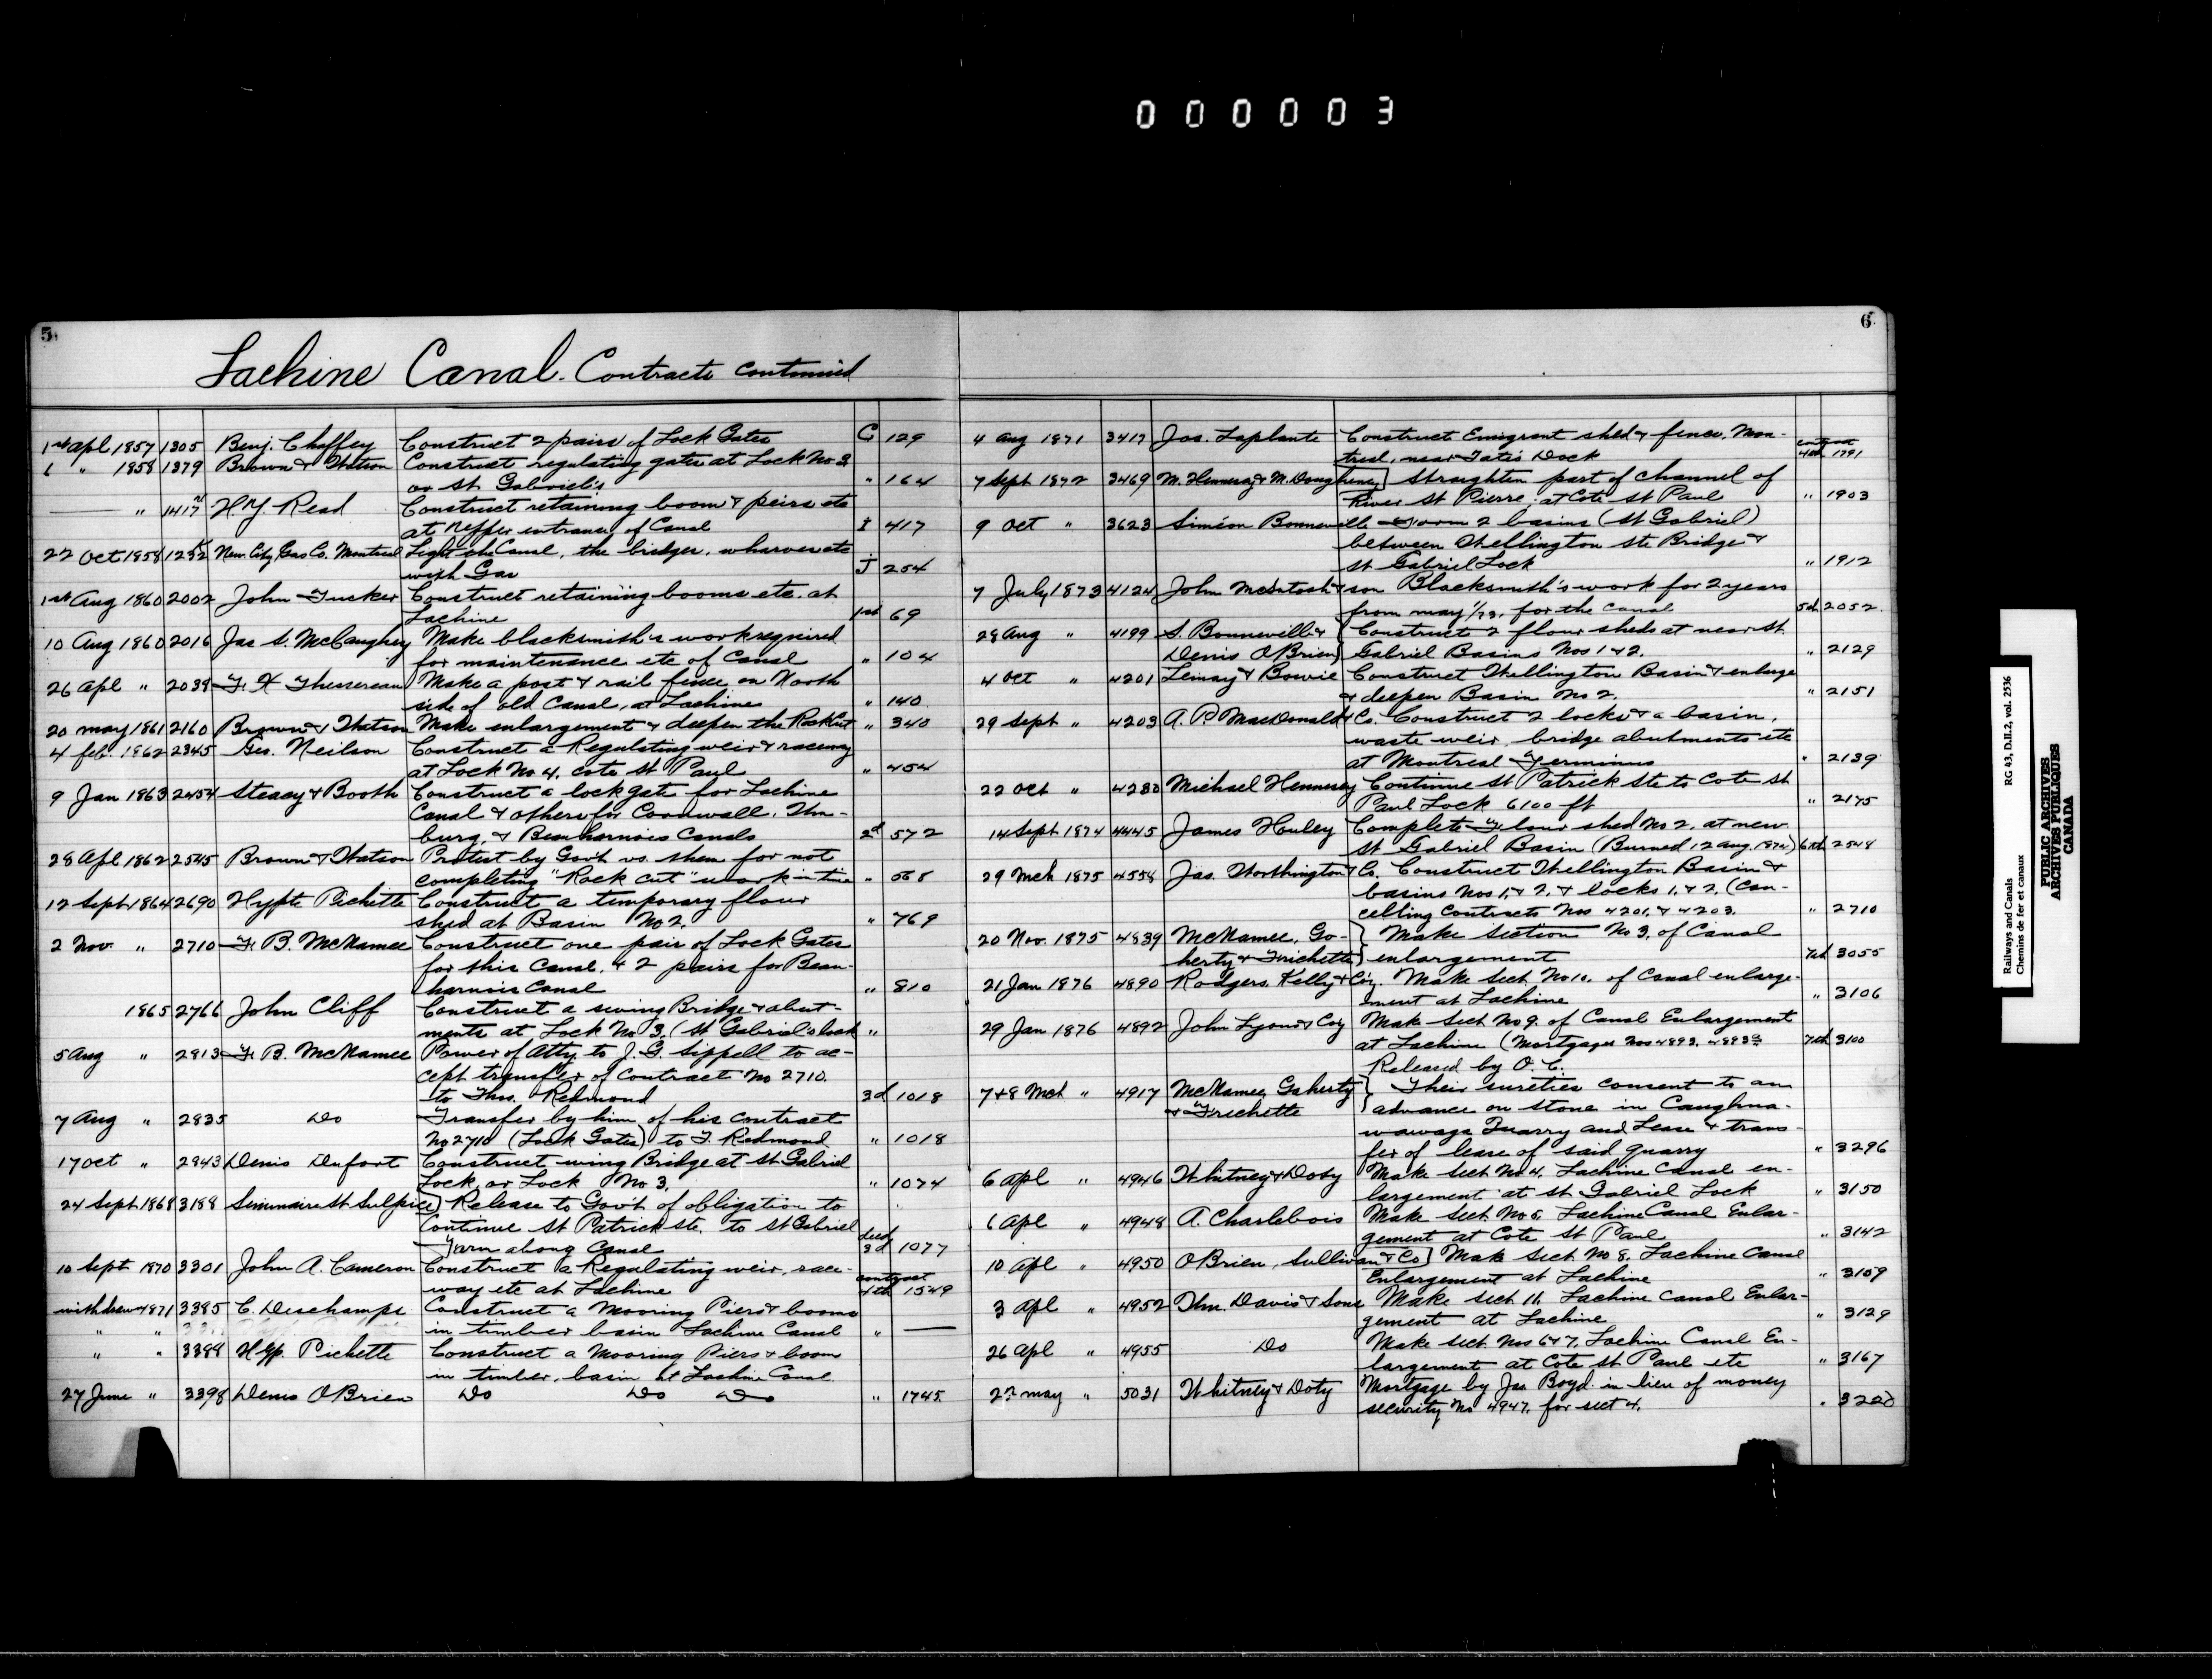 0 0 0 0 0 3
5
Lachine Canal. Contracts continued
1st Apl 1857 1305 Benj. Chaffey Construct 2 pairs of Lock Gates G 129
6 " 1858 1379 Brown & Watson Construct regulating gates at Lock No 3
or St. Gabriel's " 164
" 1417 H.Y. Read Construct retaining boom & piers etc
at upper entrance of Canal I 417
22 Oct 1858 1252 New City Gas Co. Montreal Light the Canal, the bridges, wharves etc
with Gas J 254
1st Aug 1860 2002 John Tucker Construct retaining booms etc. at
Lachine 1st 69
10 Aug 1860 2016 Jas S. McCaughey Make blacksmith's work required
for maintenance etc of Canal " 104
26 Apl " 2039 F. X Thessereau Make a post & rail fence on North
side of old Canal, at Lachine " 140
20 May 1861 2160 Brown & Watson Make enlargement & deepen the Rock Cut " 340
4 feb. 1862 2345 Geo. Neilson Construct a Regulating weir & raceway
at Lock No 4, Cote St Paul " 454
9 Jan 1863 2454 Steacy & Booth Construct a lock gate for Lachine
Canal & others for Cornwall, Wm-
burg, & Beauharnois Canals 2d 572
28 Apl 1862 2545 Brown & Watson Protest by Govt vs. them for not
completing "Rock cut" work in time " 568
12 Sept 1864 2690 Hypte Pichette Construct a temporary flour
shed at Basin No 2. " 769
2 Nov. " 2710 F. B. McNamee Construct one pair of Lock Gates
for this Canal, & 2 pairs for Beau-
harnois Canal " 810
1865 2766 John Cliff Construct a swing Bridge & abut-
ments at Lock No 3, (St Gabriel's Lock "
5 Aug " 2813 F. B. McNamee Power of Atty to J. G. Sippell to ac-
cept transfer of Contract No 2710.
to Thos. Redmond 3d 1018
7 Aug " 2835 Do Transfer by him of his contract
No 2710 (Lock Gates) to T. Redmond " 1018
17 Oct " 2943 Denis Dufort Construct wing Bridge at St Gabriel
Lock, or Lock No 3. " 1074
24 Sept 1868 3188 Seminaire St Sulpice] Release to Govt of obligation to
Continue St Patrick Ste. to St Gabriel
Farm along Canal deeds 3d 1077
10 Sept 1870 3301 John A. Cameron Construct a Regulating weir, race-
way etc at Lachine contract 4th 1549
withdrew 1871 3385 C. Deschamps Construct a Mooring Piers & booms
" " in timber basin Lachine Canal " —
" " 3388 Hyp. Pichette Construct a Mooring Piers & boom
in timber basin at Lachine Canal
27 June " 3398 Denis OBrien Do Do Do " 1745
6
4 Aug 1871 3417 Jos. Laplante Construct Emigrant shed & fence, Mon-
treal, near Tate's Dock contract 4th 1791
7 Sept 1872 3469 M. Hennesey & M. Dougheney] Straighten part of channel of
River St Pierre, at Cote St Paul " 1903
9 Oct " 3623 Siméon Bonneville Form 2 basins (St Gabriel)
between Wellington Ste Bridge &
St Gabriel Lock " 1912
7 July 1873 4124 John McIntosh & son Blacksmith's work for 2 years
from may 1/73, for the Canal 5th 2052
28 Aug " 4199 S. Bonneville & Construct 2 flour sheds at near St.
Denis OBrien } Gabriel Basins Nos 1 & 2. " 2129
4 Oct " 4201 Lemay & Bowie Construct Wellington Basin & enlarge
& deepen Basin No 2. " 2151
29 Sept " 4203 A. P. MacDonald & Co. Construct 2 locks & a basin,
waste weir, bridge abutments etc
at Montreal Terminus " 2139
22 Oct " 4280 Michael Hennesey Continue St Patrick Ste to Cote St
Paul Lock 6100 ft " 2175
14 Sept 1874 4445 James Howley Complete Flour shed No 2, at new
St Gabriel Basin (Burned 12 Aug. 1874) 6th 2548
29 Mch 1875 4558 Jas. Worthington & Co. Construct Wellington Basin &
basins Nos 1, & 2, & locks 1, & 2, (can-
celling Contracts Nos 4201, & 4203. " 2710
20 Nov. 1875 4839 McNamee, Ga- } Make Section No 3, of Canal
herty & Frichette } enlargement 7th 3055
21 Jan 1876 4890 Rodgers, Kelly & Coy. Make Sect No 10. of Canal enlarge-
ment at Lachine " 3106
29 Jan 1876 4892 John Lyons & Coy Make Sect No 9. of Canal Enlargement
at Lachine (Mortgages Nos 4893, 4893½ 7th 3100
Released by O. C.
7 & 8 Mch " 4917 McNamee, Gaherty } Their sureties consent to an
& Frichette } advance on stone in Caughna-
wawaga Quarry and Lease & trans-
fer of lease of said quarry " 3296
6 Apl " 4946 Whitney & Doty Make Sect No 4, Lachine Canal en-
largement at St Gabriel Lock " 3150
6 Apl " 4948 A. Charlebois Make Sect No 5, Lachine Canal Enlar-
gement at Cote St Paul " 3142
10 Apl " 4950 OBrien, Sullivan & Co] Make Sect No 8, Lachine Canal
Enlargement at Lachine " 3109
3 Apl " 4952 Wm. Davis & Sons Make Sect 11, Lachine Canal Enlar-
gement at Lachine " 3129
26 Apl " 4955 Do Make Sect Nos 6 & 7, Lachine Canal En-
largement at Cote St Paul etc " 3167
22 May " 5031 Whitney & Doty Mortgage by Jas. Boyd in lieu of money
security No 4947, for sect 4. " 3220
Railways and Canals RG 43, D.II.2, vol. 2536
Chemins de fer et canaux
PUBLIC ARCHIVES
ARCHIVES PUBLIQUES
CANADA